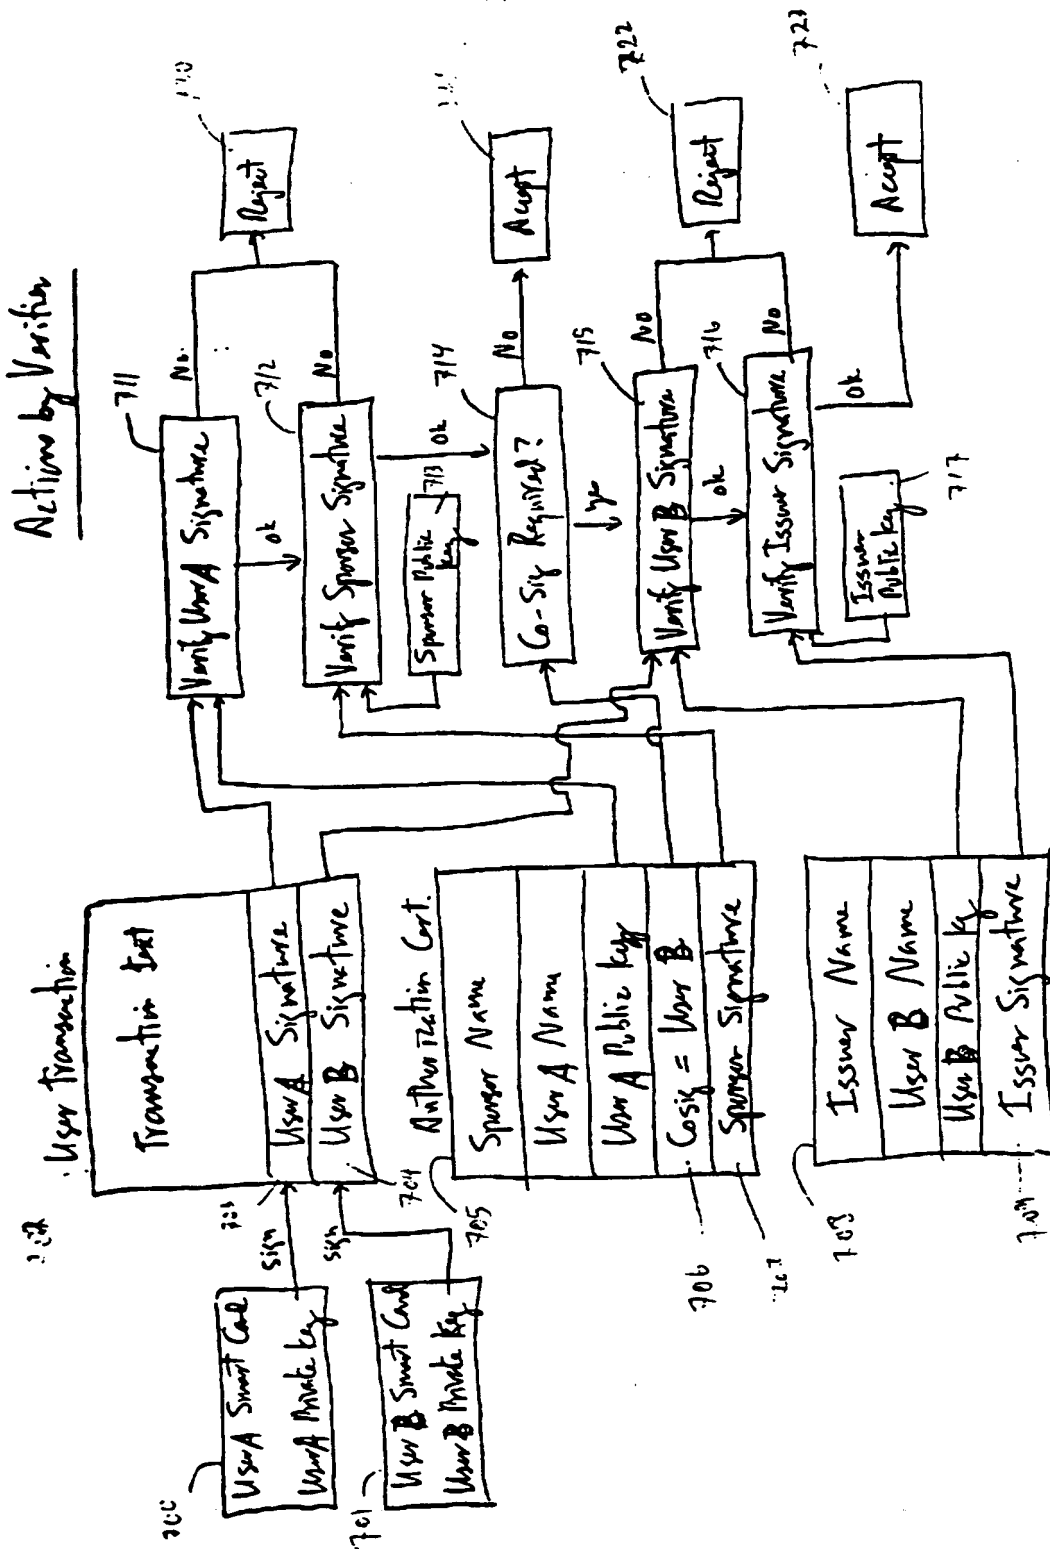 Actions by Verifier
User Transaction
Transaction Text
User A Signature
User B Signature
704
sign
sign
User A Smart Card
User A Private Key
700
User B Smart Card
User B Private Key
701
Authorization Cert.
705
Sponsor Name
User A Name
User A Public Key
Cosig = User B
706
Sponsor Signature
708
Issuer Name
User B Name
User B Public Key
Issuer Signature
711
Verify User A Signature
No
Ok
712
Verify Sponsor Signature
No
Ok
Reject
Sponsor Public
Key
713
714
Co-Sig Required?
No
Yes
Accept
715
Verify User B Signature
No
Ok
716
Verify Issuer Signature
No
Ok
Reject
722
Issuer
Public Key
717
Accept
723